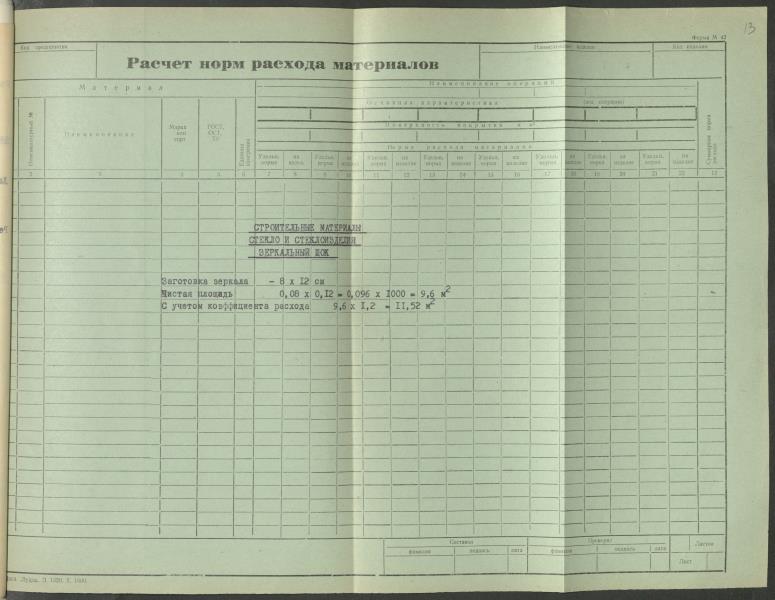 13
Форма М 42
Код предприятия
Наименование изделия
Код изделия
Расчет норм расхода материалов
Материал
Наименование операций
Основная характеристика
(код операции)
Поверхность покрытия в м²
Норма расхода материалов
Номенклатурный №
Наименование
Марка или сорт
ГОСТ, ОСТ, ТУ
Единица измерения
Удельн. норма
на издел.
Удельн. норма
на изделие
Удельн. норма
на изделие
Удельн. норма
на изделие
Удельн. норма
на изделие
Удельн. норма
на изделие
Удельн. норма
на изделие
Удельн. норма
на изделие
Суммарная норма расхода
2 3 4 5 6 7 8 9 10 11 12 13 14 15 16 17 18 19 20 21 22 23
СТРОИТЕЛЬНЫЕ МАТЕРИАЛЫ
СТЕКЛО И СТЕКЛОИЗДЕЛИЯ
ЗЕРКАЛЬНЫЙ ШОК
Заготовка зеркала - 8 х 12 см
Чистая площадь 0,08 х 0,I2 = 0,096 х I000 = 9,6 м²
С учетом коэффициента расхода 9,6 х I,2 = II,52 м²
Составил
Проверил
Листов
фамилия
подпись
дата
фамилия
подпись
дата
Лист